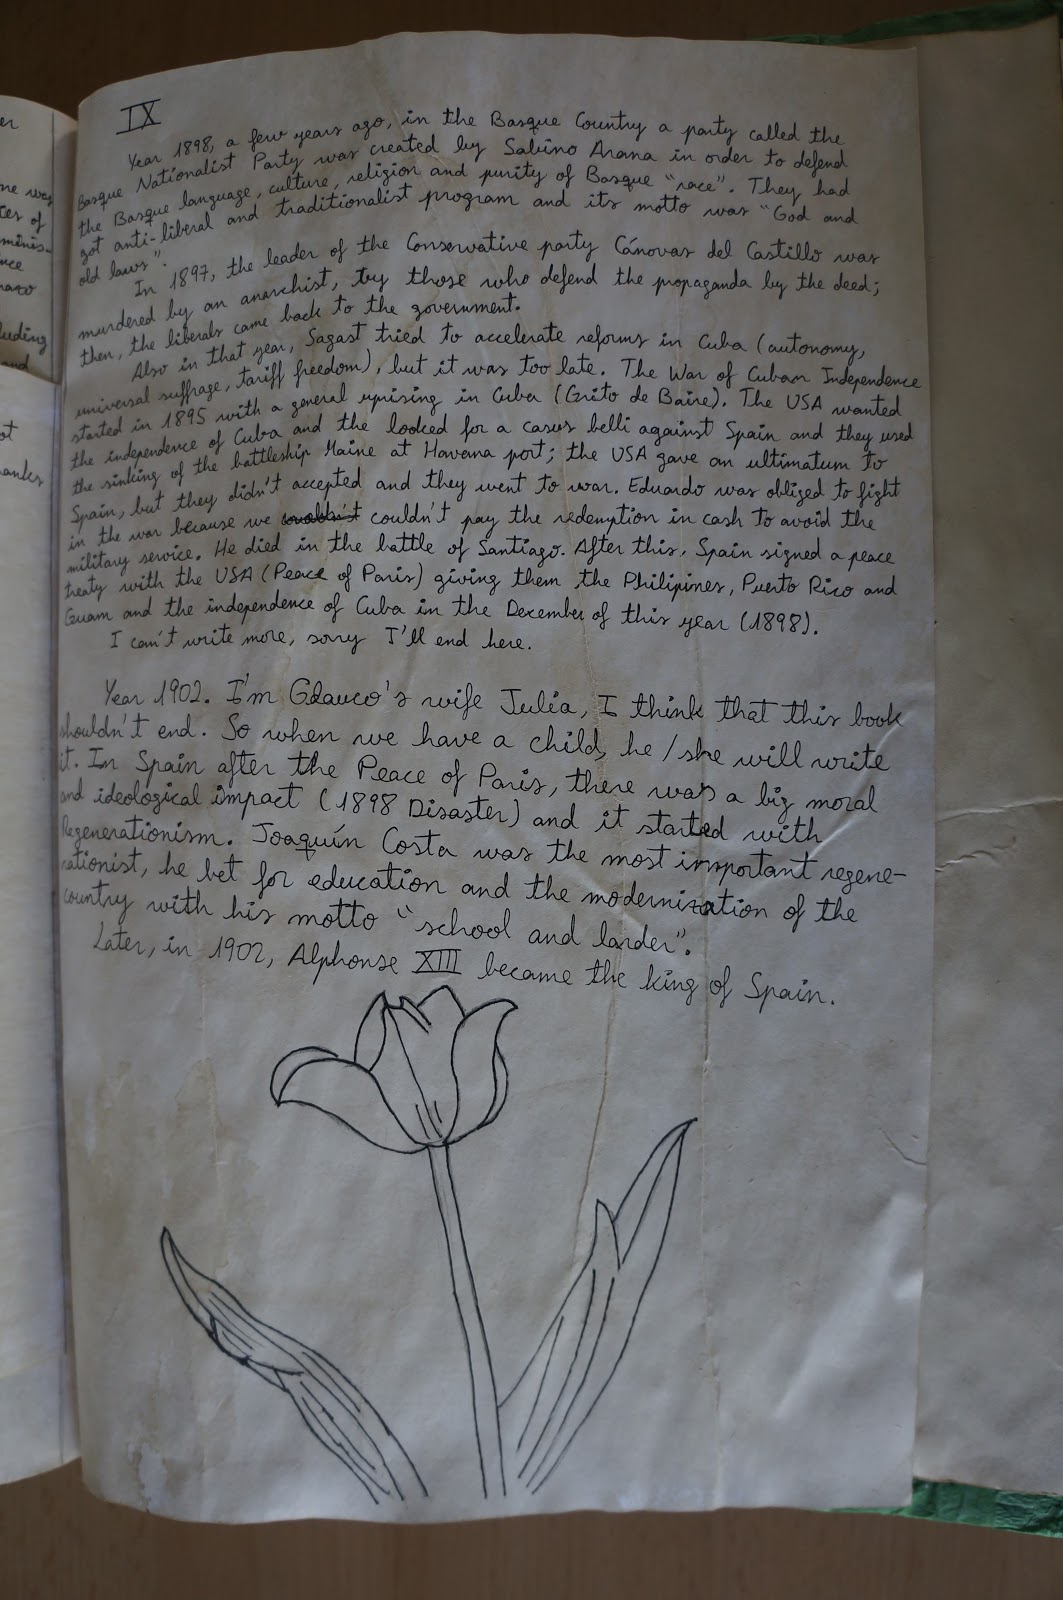 IX
Year 1898, a few years ago, in the Basque Country a party called the
Basque Nationalist Party was created by Sabino Arana in order to defend
the Basque language, culture, religion and purity of Basque "race". They had
got anti-liberal and traditionalist program and its motto was "God and
old laws".
In 1897, the leader of the Conservative party Cánovas del Castillo was
murdered by an anarchist, by those who defend the propaganda by the deed;
then, the liberals came back to the government.
Also in that year, Sagast tried to accelerate reforms in Cuba (autonomy,
universal suffrage, tariff freedom), but it was too late. The War of Cuban Independence
started in 1895 with a general uprising in Cuba (Grito de Baire). The USA wanted
the independence of Cuba and the looked for a casus belli against Spain and they used
the sinking of the battleship Maine at Havana port; the USA gave an ultimatum to
Spain, but they didn't accepted and they went to war. Eduardo was obliged to fight
in the war because we couldn't pay the redemption in cash to avoid the
military service. He died in the battle of Santiago. After this, Spain signed a peace
treaty with the USA (Peace of Paris) giving them the Philipines, Puerto Rico and
Guam and the independence of Cuba in the December of this year (1898).
I can't write more, sorry I'll end here.
Year 1902. I'm Glauco's wife Julia, I think that this book
shouldn't end. So when we have a child, he/she will write
it. In Spain after the Peace of Paris, there was a big moral
and ideological impact (1898 Disaster) and it started with
Regenerationism. Joaquín Costa was the most important regene-
rationist, he bet for education and the modernization of the
country with his motto "school and larder".
Later, in 1902, Alphonse XIII became the king of Spain.